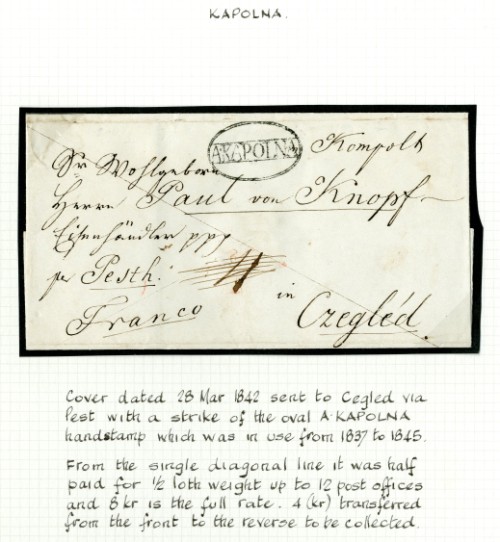 KAPOLNA.
A.KAPOLNA
Kompolt
Sr Wohlgeborn
Herrn Paul von Knopf
Eisenhändler ppp
per Pesth:
in
Franco
Czegléd.
Cover dated 28 Mar 1842 sent to Cegled via
Pest with a strike of the oval A-KAPOLNA
handstamp which was in use from 1837 to 1845.
From the single diagonal line it was half
paid for ½ loth weight up to 12 post offices
and 8 kr is the full rate. 4 (kr) transferred
from the front to the reverse to be collected.